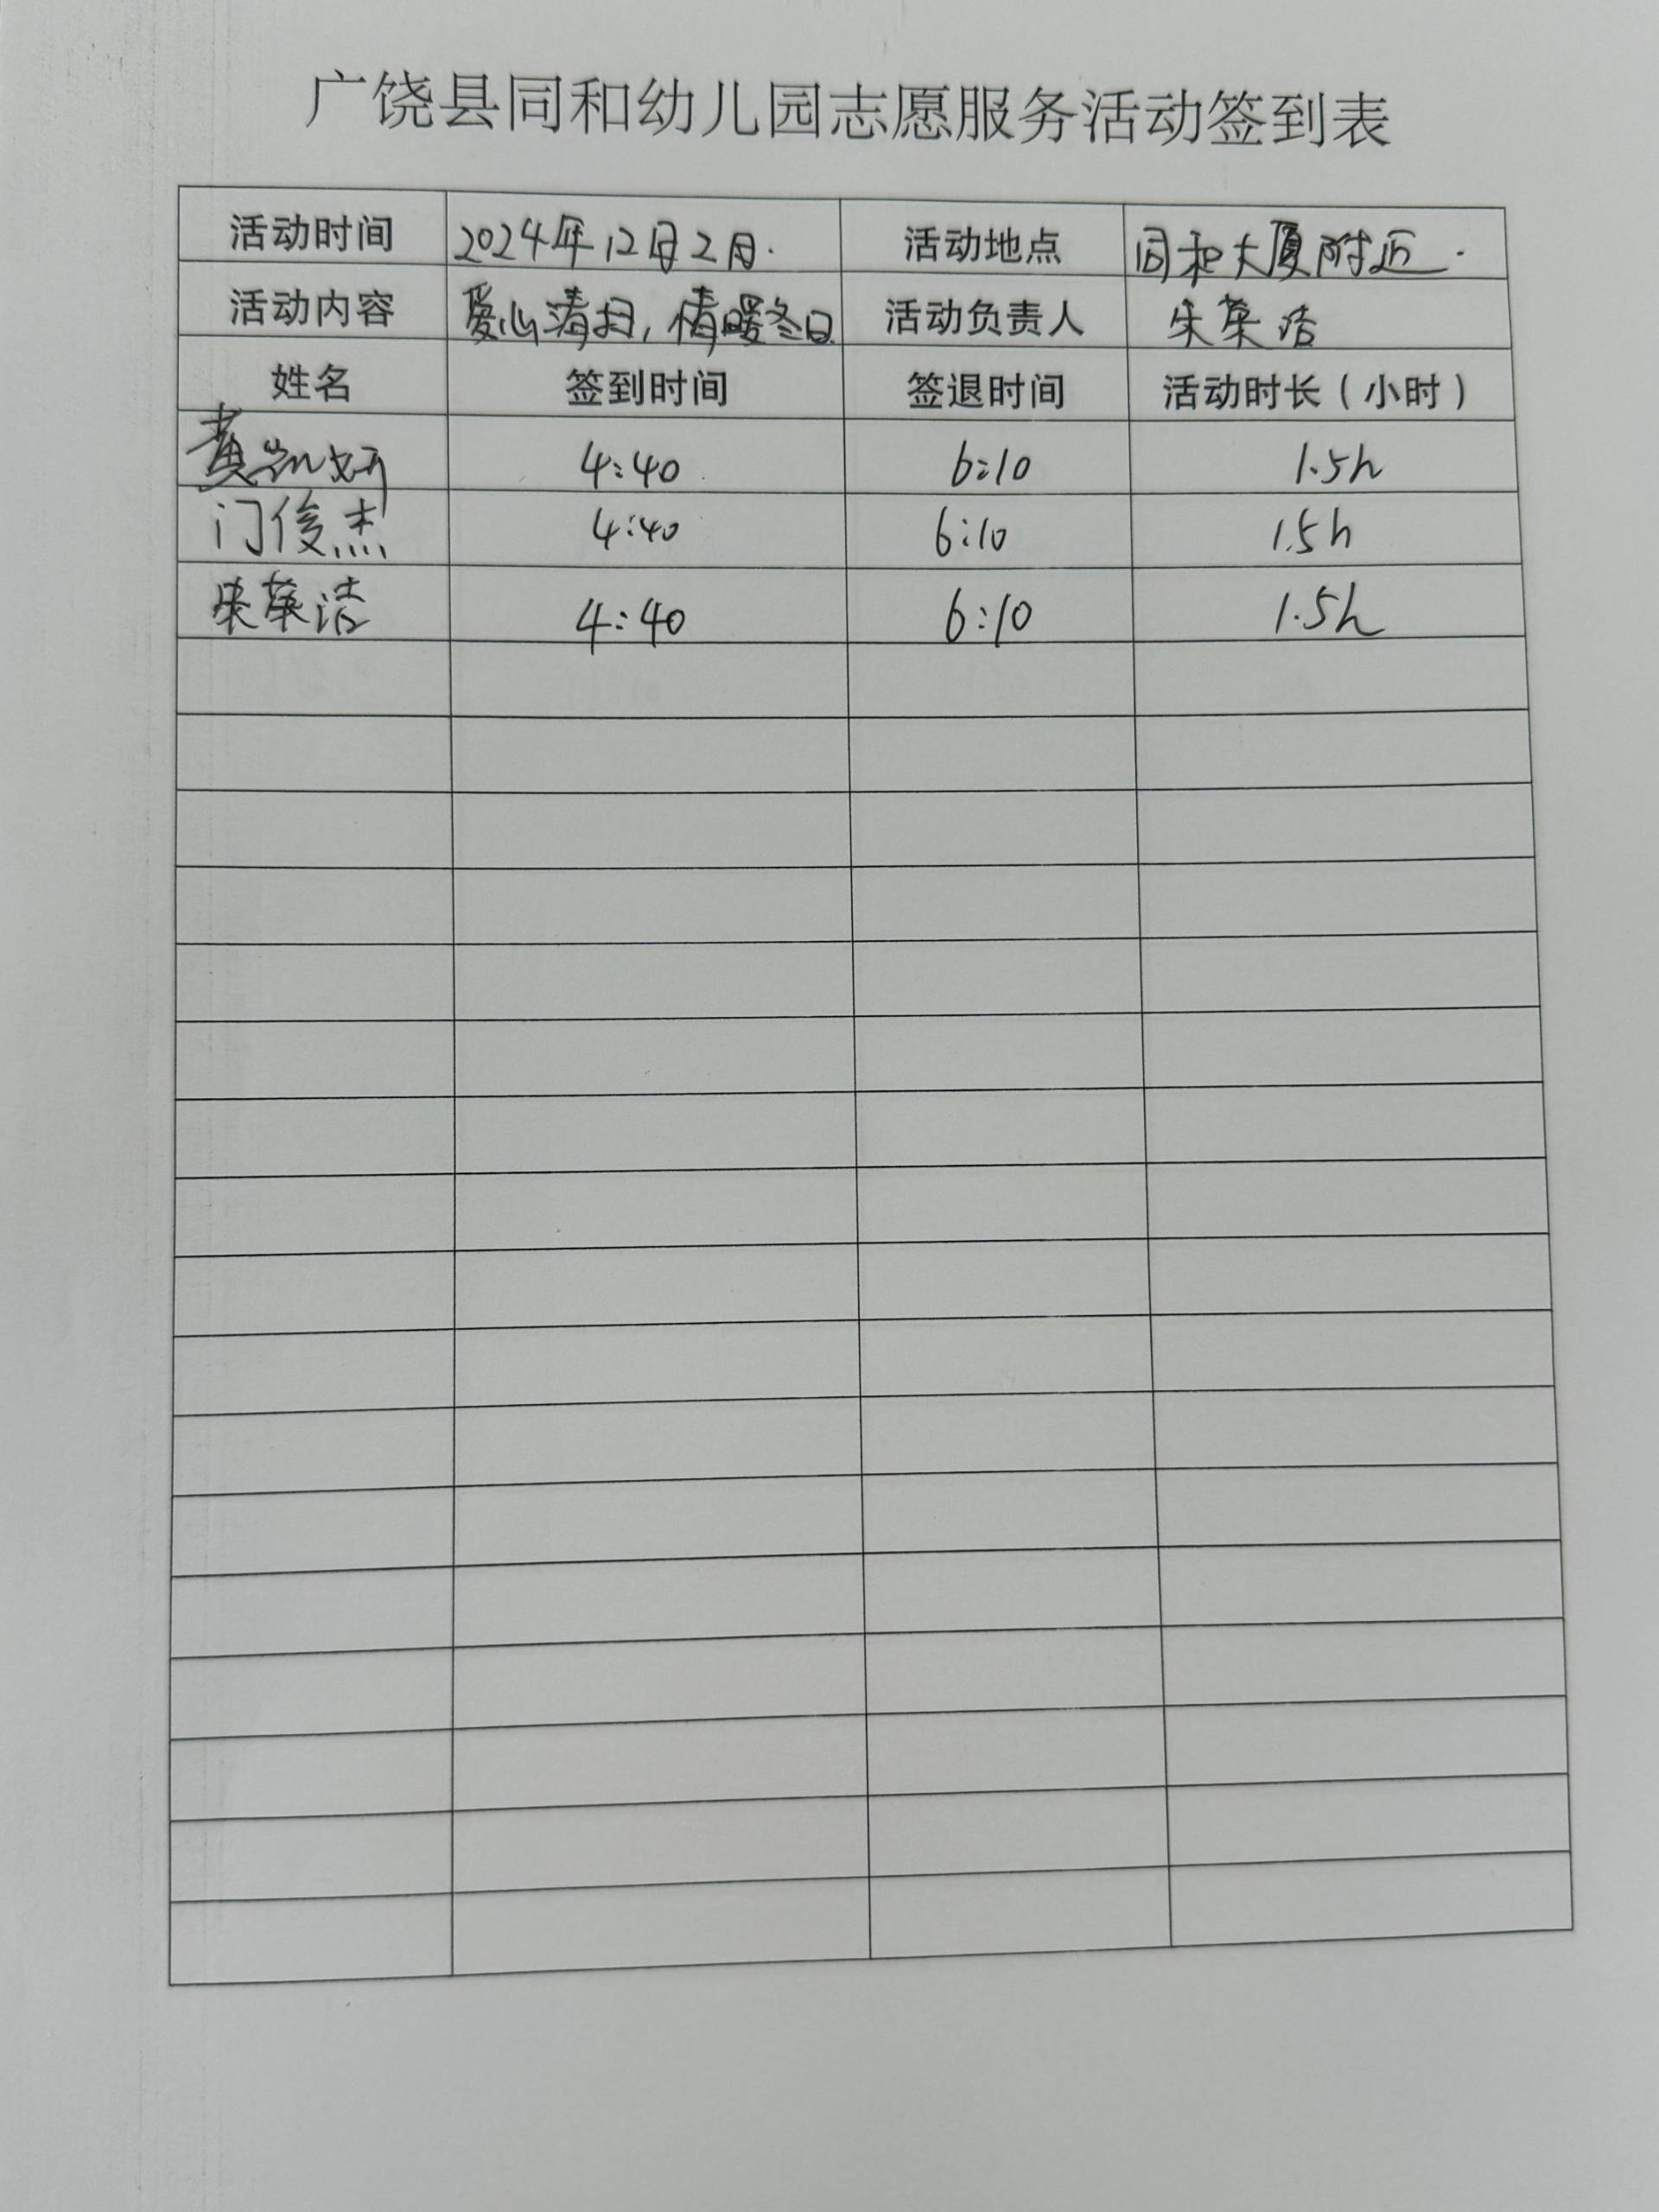 广饶县同和幼儿园志愿服务活动签到表
活动时间 2024年12月2日. 活动地点 同和大厦附近.
活动内容 爱心清扫,情暖冬日 活动负责人 朱荣洁
姓名 签到时间 签退时间 活动时长(小时)
黄凯妍 4:40 6:10 1.5h
门俊杰 4:40 6:10 1.5h
朱荣洁 4:40 6:10 1.5h